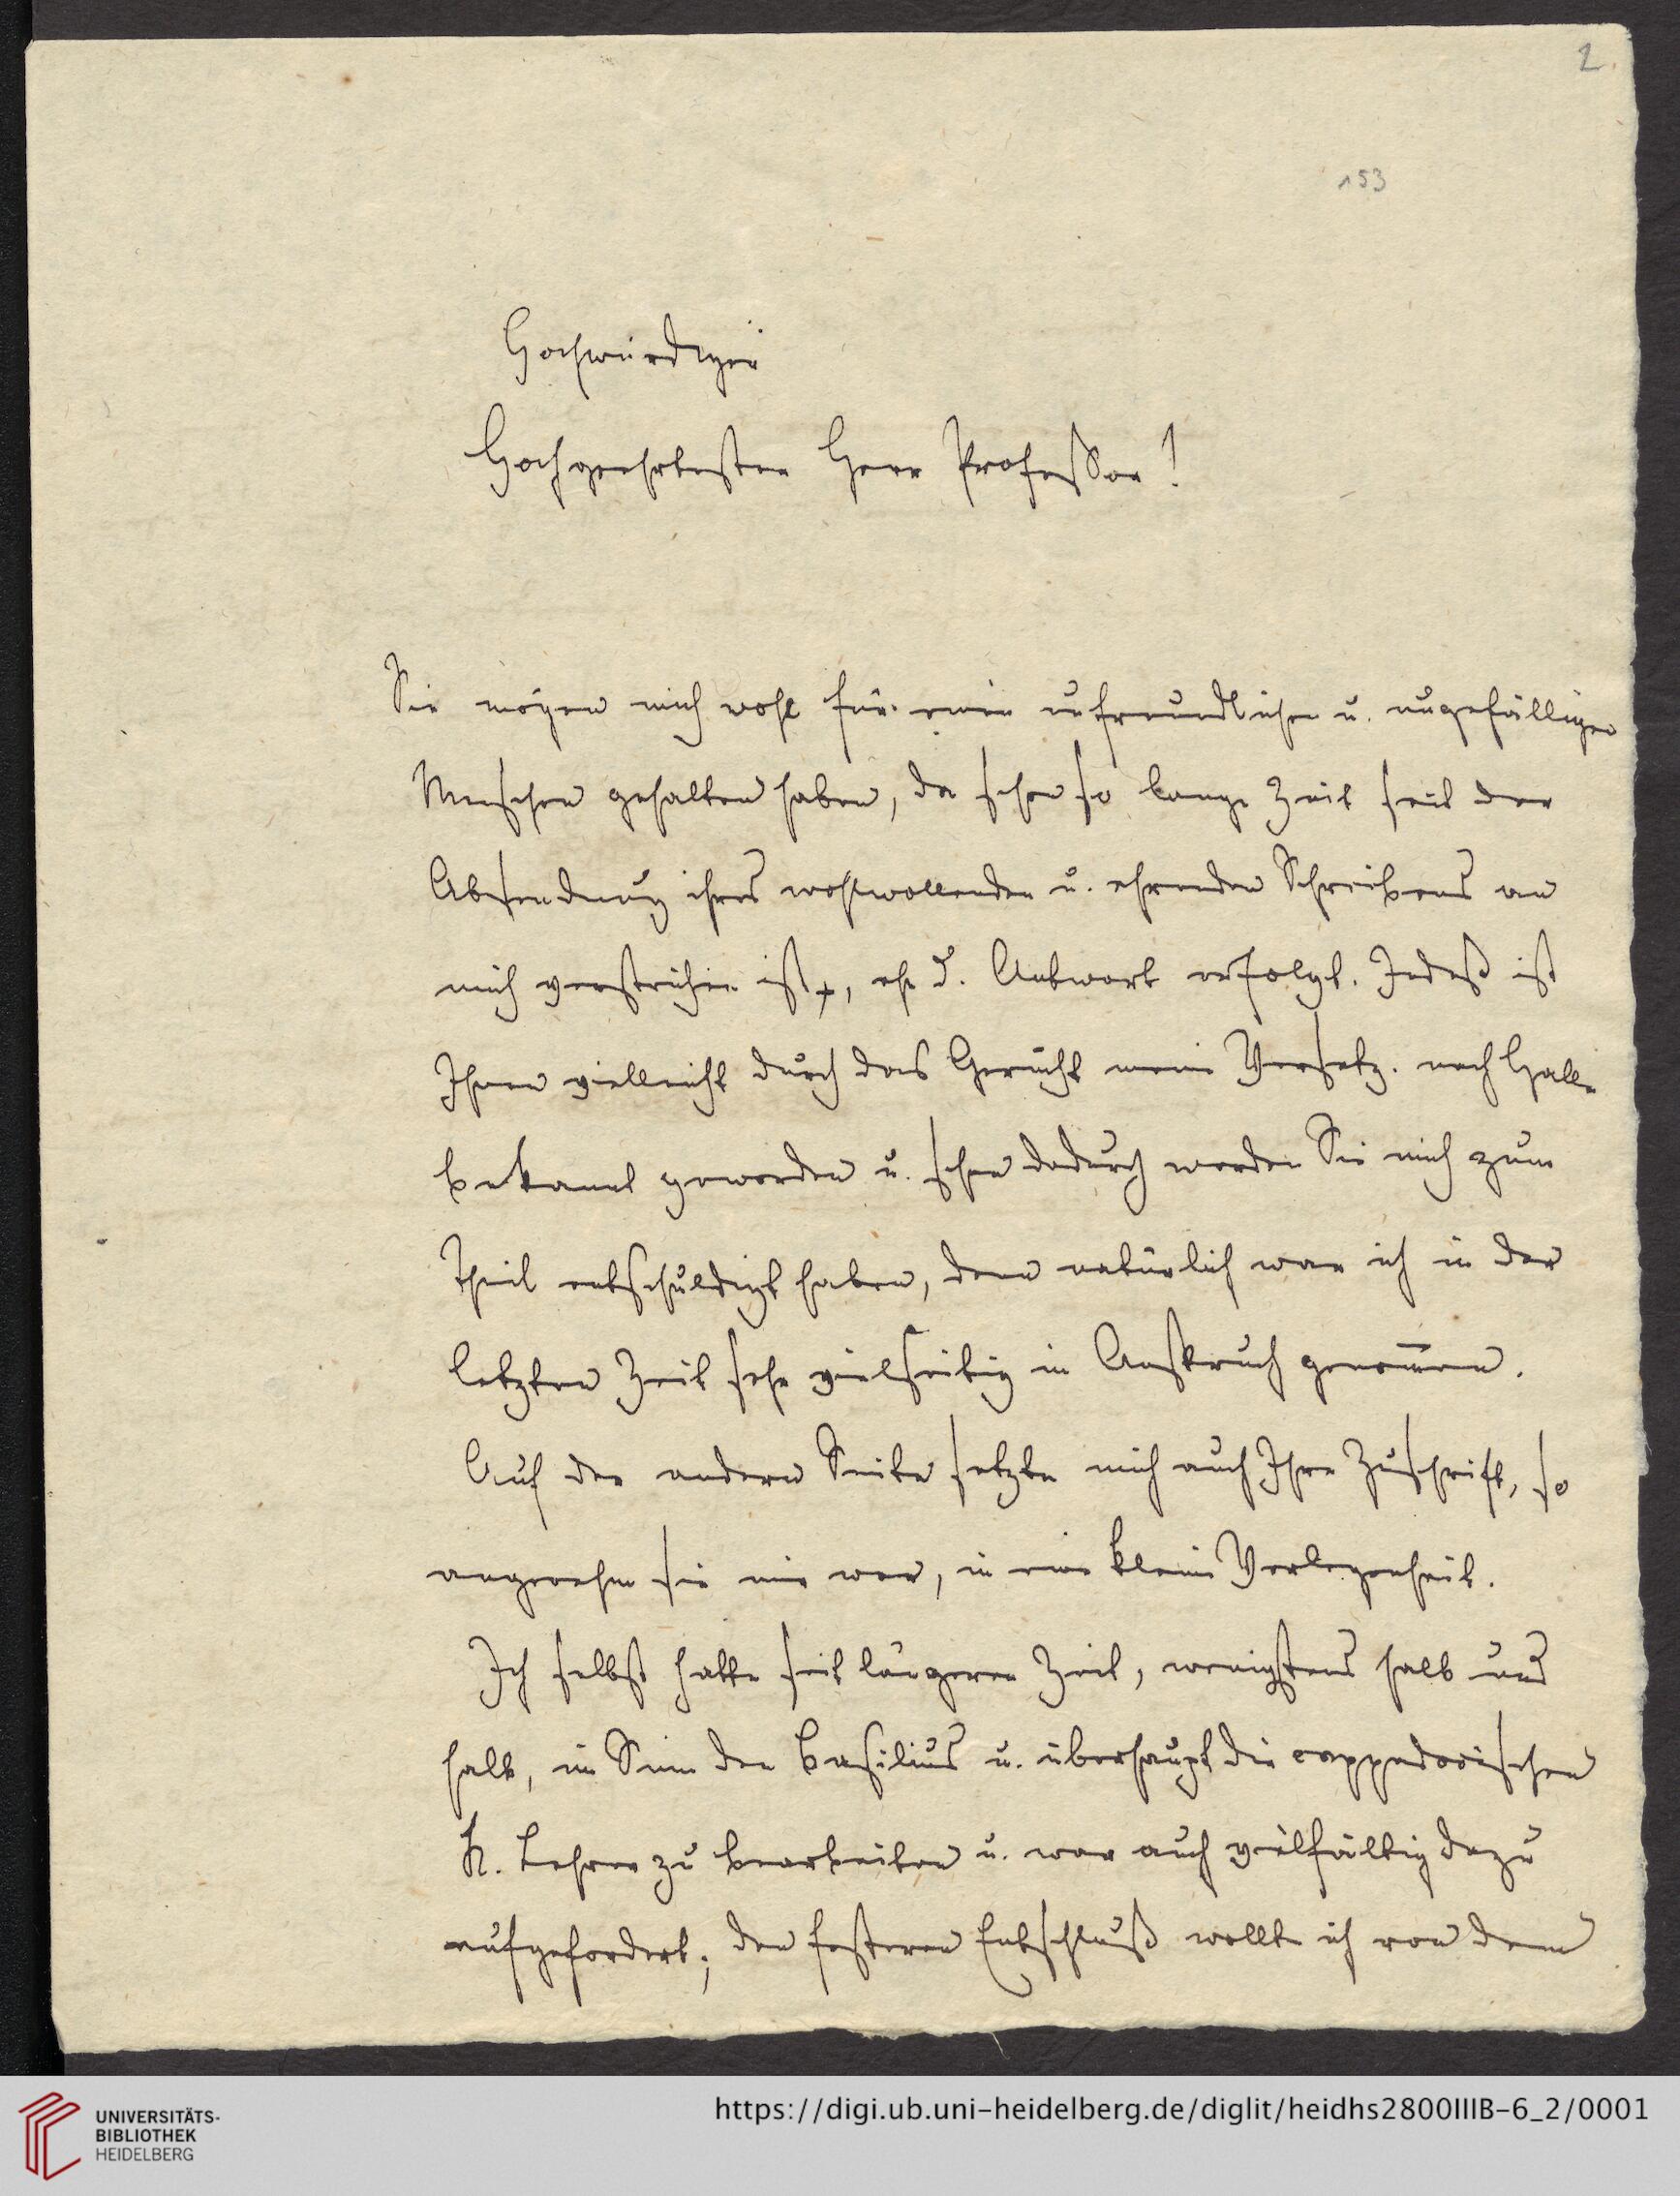 2
153
Hochwürdiger
Hochgeehrtester Herr Professor!
Sie mögen mich wohl für einen unfreundlichen u. ungefälligen
Menschen gehalten haben, da schon so lange Zeit seit der
Absendung ihres wohlwollenden u. ehrenden Schreibens an
mich verstrichen ist, ehe d. Antwort erfolgt. Indeß ist
Ihnen vielleicht durch das Gerücht meine Versetz. nach Halle
bekannt geworden u. schon dadurch werden Sie mich zum
Theil entschuldigt haben, denn natürlich war ich in der
letzten Zeit sehr vielseitig in Anspruch genommen.
Auf der andern Seite setzte mich auch Ihre Zuschrift, so
angenehm sie mir war, in eine kleine Verlegenheit.
Ich selbst hatte seit längerer Zeit, wenigstens halb und
halb, im Sinn den Basilius u. überhaupt die cappadocischen
K. Lehrer zu bearbeiten u. war auch vielfältig dazu
aufgefordert; den festeren Entschluß wollte ich von dem
UNIVERSITÄTS-
BIBLIOTHEK
HEIDELBERG
https://digi.ub.uni-heidelberg.de/diglit/heidhs2800IIIB-6_2/0001